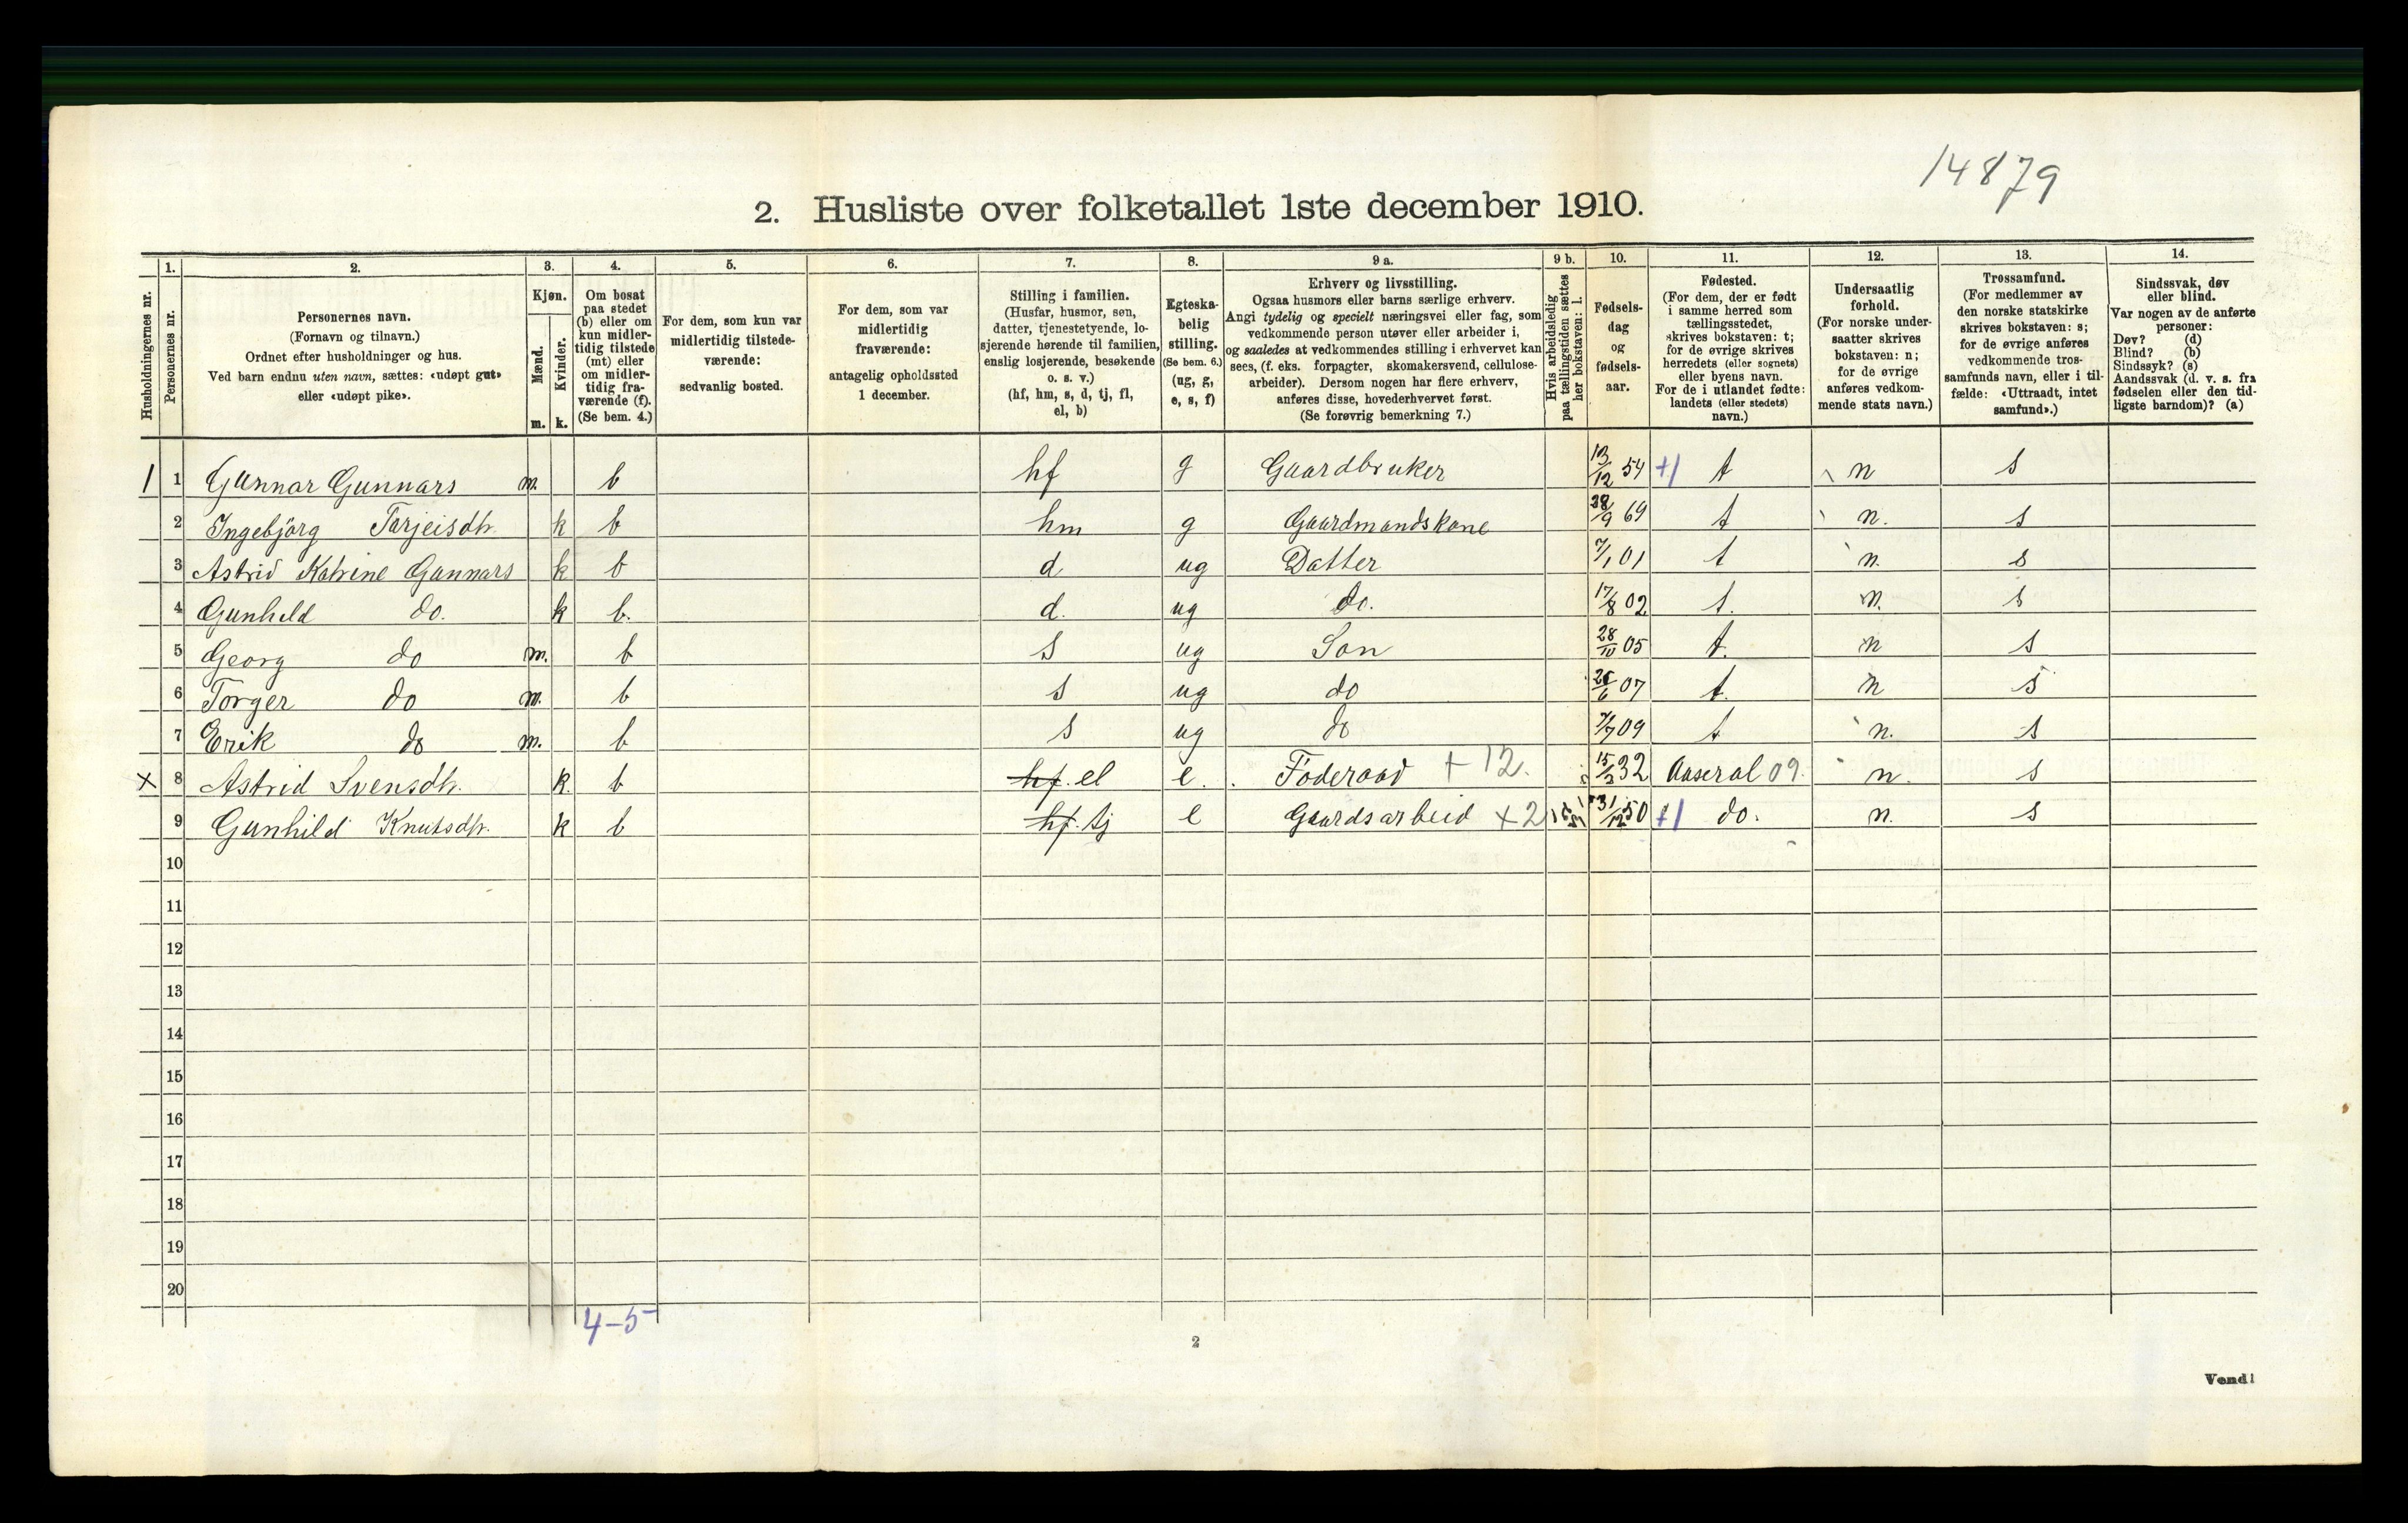 14879
2. Husliste over folketallet 1ste december 1910.
Husholdningernes nr.
1. Personernes nr.
2. Personernes navn.
(Fornavn og tilnavn.)
Ordnet efter husholdninger og hus.
Ved barn endnu uten navn, sættes: «udøpt gut»
eller «udøpt pike».
3. Kjøn.
Mænd. Kvinder.
m. k.
4. Om bosat
paa stedet
(b) eller om
kun midler-
tidig tilstede
(mt) eller
om midler-
tidig fra-
værende (f).
(Se bem. 4.)
5. For dem, som kun var
midlertidig tilstede-
værende:
sedvanlig bosted.
6. For dem, som var
midlertidig
fraværende:
antagelig opholdssted
1 december.
7. Stilling i familien.
(Husfar, husmor, søn,
datter, tjenestetyende, lo-
sjerende hørende til familien,
enslig losjerende, besøkende
o. s. v.)
(hf, hm, s, d, tj, fl,
el, b)
8. Egteska-
belig
stilling.
(Se bem. 6.)
(ug, g,
e, s, f)
9 a. Erhverv og livsstilling.
Ogsaa husmors eller barns særlige erhverv.
Angi tydelig og specielt næringsvei eller fag, som
vedkommende person utøver eller arbeider i,
og saaledes at vedkommendes stilling i erhvervet kan
sees, (f. eks. forpagter, skomakersvend, cellulose-
arbeider). Dersom nogen har flere erhverv,
anføres disse, hovederhvervet først.
(Se forøvrig bemerkning 7.)
9 b. Hvis arbeidsledig
paa tællingstiden sættes
her bokstaven: l.
10. Fødsels-
dag
og
fødsels-
aar.
11. Fødested.
(For dem, der er født
i samme herred som
tællingsstedet,
skrives bokstaven: t;
for de øvrige skrives
herredets (eller sognets)
eller byens navn.
For de i utlandet fødte:
landets (eller stedets)
navn.)
12. Undersaatlig
forhold.
(For norske under-
saatter skrives
bokstaven: n;
for de øvrige
anføres vedkom-
mende stats navn.)
13. Trossamfund.
(For medlemmer av
den norske statskirke
skrives bokstaven: s;
for de øvrige anføres
vedkommende tros-
samfunds navn, eller i til-
fælde: «Uttraadt, intet
samfund».)
14. Sindssvak, døv
eller blind.
Var nogen av de anførte
personer:
Døv? (d)
Blind? (b)
Sindssyk? (s)
Aandssvak (d. v. s. fra
fødselen eller den tid-
ligste barndom)? (a)
1 1 Gunnar Gunnars m. b hf g Gaardbruker 13/12 54 +1 t n s
2 Ingebjörg Tarjeisdtr. k b hm g Gaardmandskone 28/9 69 t n. s
3 Astrid Katrine Gunnars k b d ug Datter 7/1 01 t n. s
4 Gunhild do. k b. d. ug do. 17/8 02 t. n. s
5 Georg do m. b s ug Søn 28/10 05 t. n s
6 Torger do m. b s ug do 26/6 07 t. n s
7 Erik do m. b s ug do 7/7 09 t n. s
x 8 Astrid Svensdtr. k. b hf. el e. Föderaad + 12. 15/3 32 Aaseral 09. n. s
9 Gunhild Knutsdtr. k b hf. tj e Gaardsarbeid x2 31/12 50 +1 do. n. s
10
11
12
13
14
15
16
17
18
19
20
4-5
2
Vend!